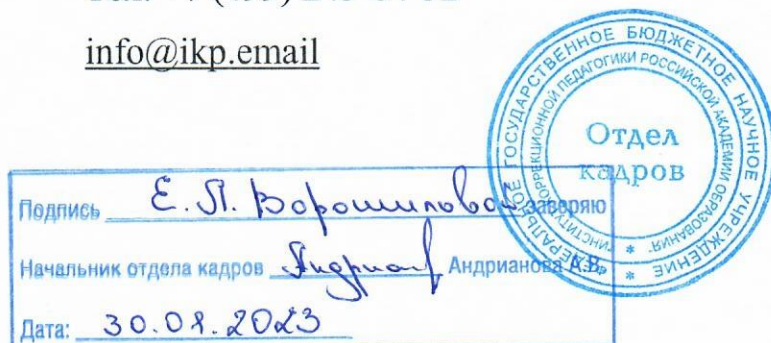 info@ikp.email
ФЕДЕРАЛЬНОЕ ГОСУДАРСТВЕННОЕ БЮДЖЕТНОЕ НАУЧНОЕ УЧРЕЖДЕНИЕ
КОРРЕКЦИОННОЙ ПЕДАГОГИКИ РОССИЙСКОЙ АКАДЕМИИ ОБРАЗОВАНИЯ
Отдел
кадров
Подпись Е. Л. Ворошиловой заверяю
Начальник отдела кадров Андрианова А.В.
Дата: 2023